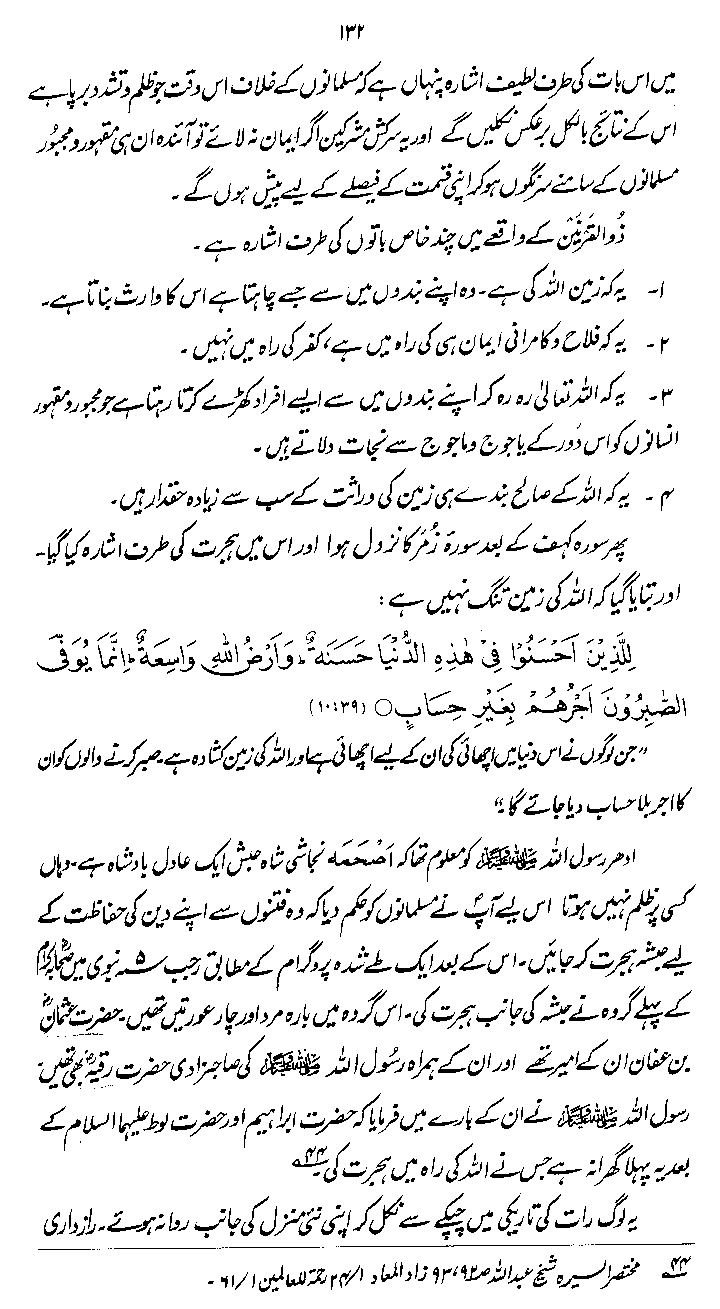 ۱۳۲
میں اس بات کی طرف لطیف اشارہ پنہاں ہے کہ مسلمانوں کے خلاف اس وقت جو ظلم و تشدد برپا ہے
اس کے نتائج بالکل برعکس نکلیں گے اور یہ سرکش مشرکین اگر ایمان نہ لائے تو آئندہ ان ہی مقہور و مجبور
مسلمانوں کے سامنے سرنگوں ہو کر اپنی قسمت کے فیصلے کے لیے پیش ہوں گے۔
ذُوالقرنَیْن کے واقعے میں چند خاص باتوں کی طرف اشارہ ہے۔
۱- یہ کہ زمین اللہ کی ہے۔ وہ اپنے بندوں میں سے جسے چاہتا ہے اس کا وارث بناتا ہے۔
۲- یہ کہ فلاح و کامرانی ایمان ہی کی راہ میں ہے، کفر کی راہ میں نہیں۔
۳- یہ کہ اللہ تعالیٰ رہ رہ کر اپنے بندوں میں سے ایسے افراد کھڑے کرتا رہتا ہے جو مجبور و مقہور
انسانوں کو اس دَور کے یاجوج و ماجوج سے نجات دلاتے ہیں۔
۴- یہ کہ اللہ کے صالح بندے ہی زمین کی وراثت کے سب سے زیادہ حقدار ہیں۔
پھر سورہ کہف کے بعد سورۃ زُمَر کا نزول ہوا اور اس میں ہجرت کی طرف اشارہ کیا گیا۔
اور بتایا گیا کہ اللہ کی زمین تنگ نہیں ہے:
لِلَّذِیْنَ اَحْسَنُوْا فِیْ هٰذِهِ الدُّنْیَا حَسَنَةٌ ؕ وَاَرْضُ اللّٰهِ وَاسِعَةٌ ؕ اِنَّمَا یُوَفَّی
الصّٰبِرُوْنَ اَجْرَهُمْ بِغَیْرِ حِسَابٍ ○ (۱۰:۳۹)
”جن لوگوں نے اس دنیا میں اچھائی کی ان کے لیے اچھائی ہے اور اللہ کی زمین کشادہ ہے۔ صبر کرنے والوں کو ان
کا اجر بلا حساب دیا جائے گا۔“
ادھر رسول اللہ ﷺ کو معلوم تھا کہ اَصْحَمَہ نجاشی شاہ حبش ایک عادل بادشاہ ہے۔ وہاں
کسی پر ظلم نہیں ہوتا اس لیے آپؐ نے مسلمانوں کو حکم دیا کہ وہ فتنوں سے اپنے دین کی حفاظت کے
لیے حبشہ ہجرت کر جائیں۔ اس کے بعد ایک طے شدہ پروگرام کے مطابق رجب سنہ ۵ نبوی میں صحابہ کرامؓ
کے پہلے گروہ نے حبشہ کی جانب ہجرت کی۔ اس گروہ میں بارہ مرد اور چار عورتیں تھیں۔ حضرت عثمانؓ
بن عفان ان کے امیر تھے اور ان کے ہمراہ رسُول اللہ ﷺ کی صاحبزادی حضرت رقیہؓ بھی تھیں
رسول اللہ ﷺ نے ان کے بارے میں فرمایا کہ حضرت ابراہیم اور حضرت لوط علیہما السلام کے
بعد یہ پہلا گھرانہ ہے جس نے اللہ کی راہ میں ہجرت کی ۴۴؎
یہ لوگ رات کی تاریکی میں چپکے سے نکل کر اپنی نئی منزل کی جانب روانہ ہوئے۔ رازداری
۴۴؎ مختصر السیرہ شیخ عبداللہ ص ۹۲، ۹۳ زاد المعاد ۱/ ۲۴ رحمۃ للعالمین ۱/ ۶۱۔